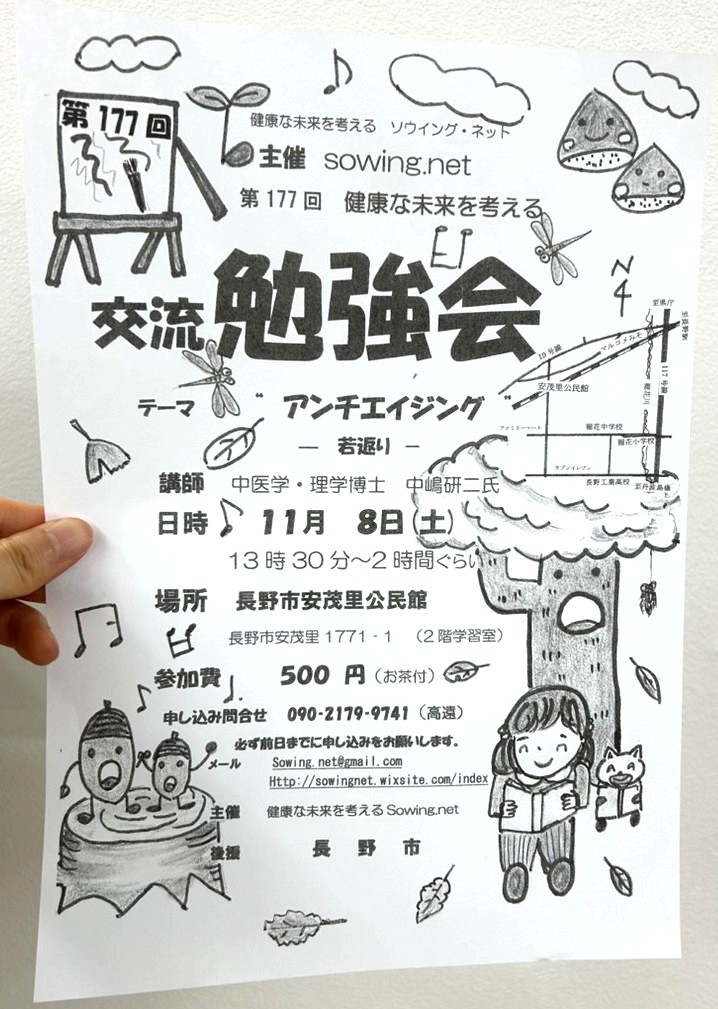 第177回
健康な未来を考える ソウイング・ネット
主催 sowing.net
第177回 健康な未来を考える
交流勉強会
テーマ “ アンチエイジング ”
― 若返り ―
講師 中医学・理学博士 中嶋研二氏
日時 11月 8日(土)
13時30分～2時間ぐらい
場所 長野市安茂里公民館
長野市安茂里1771-1 (2階学習室)
参加費 500 円(お茶付)
申し込み問合せ 090-2179-9741(高遠)
必ず前日までに申し込みをお願いします。
メール Sowing.net@gmail.com
Http://sowingnet.wixsite.com/index
主催 健康な未来を考えるSowing.net
後援 長 野 市
N
至県庁
至長野駅
19号線
マルコメみそ
117号線
安茂里公民館
裾花川
ファミリーマート
裾花中学校
裾花小学校
セブンイレブン
長野工業高校
至丹波島橋